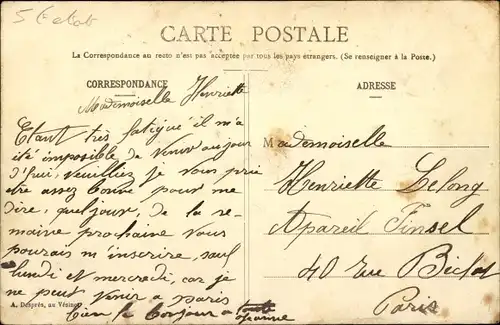 CARTE POSTALE
La Correspondance au recto n'est pas acceptée par tous les pays étrangers. (Se renseigner à la Poste.)
CORRESPONDANCE
ADRESSE
Mademoiselle Henriette
Etant très fatigué il m'a
été imposible de venir aujour
d'hui, veuilliez je vous prie
être assez bonne pour me
dire, quel jour, de la se-
maine prochaine vous
pourais m'inscrire, sauf
lundi et mercredi, car je
ne peut venir a paris
Bien le bonjour a toute
Mademoiselle
Henriette Lelong
Apareil Pinsel
40 rue
Paris
A. Desprée, au Vésinet